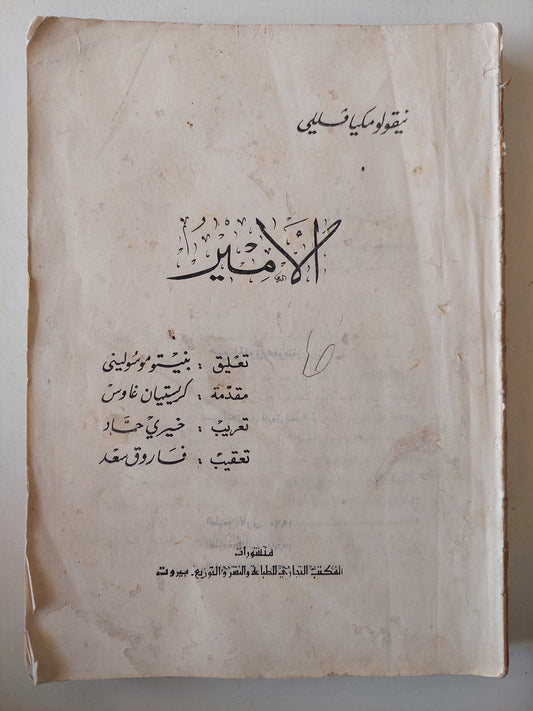 نيقولو مكيافللي
الأمير
تعليق : بنيتو موسوليني
مقدّمة : كريستيان غاوس
تعريب : خيري حمّاد
تعقيب : فاروق سعد
منشورات
المكتب التجاري للطباعة والنشر والتوزيع - بيروت